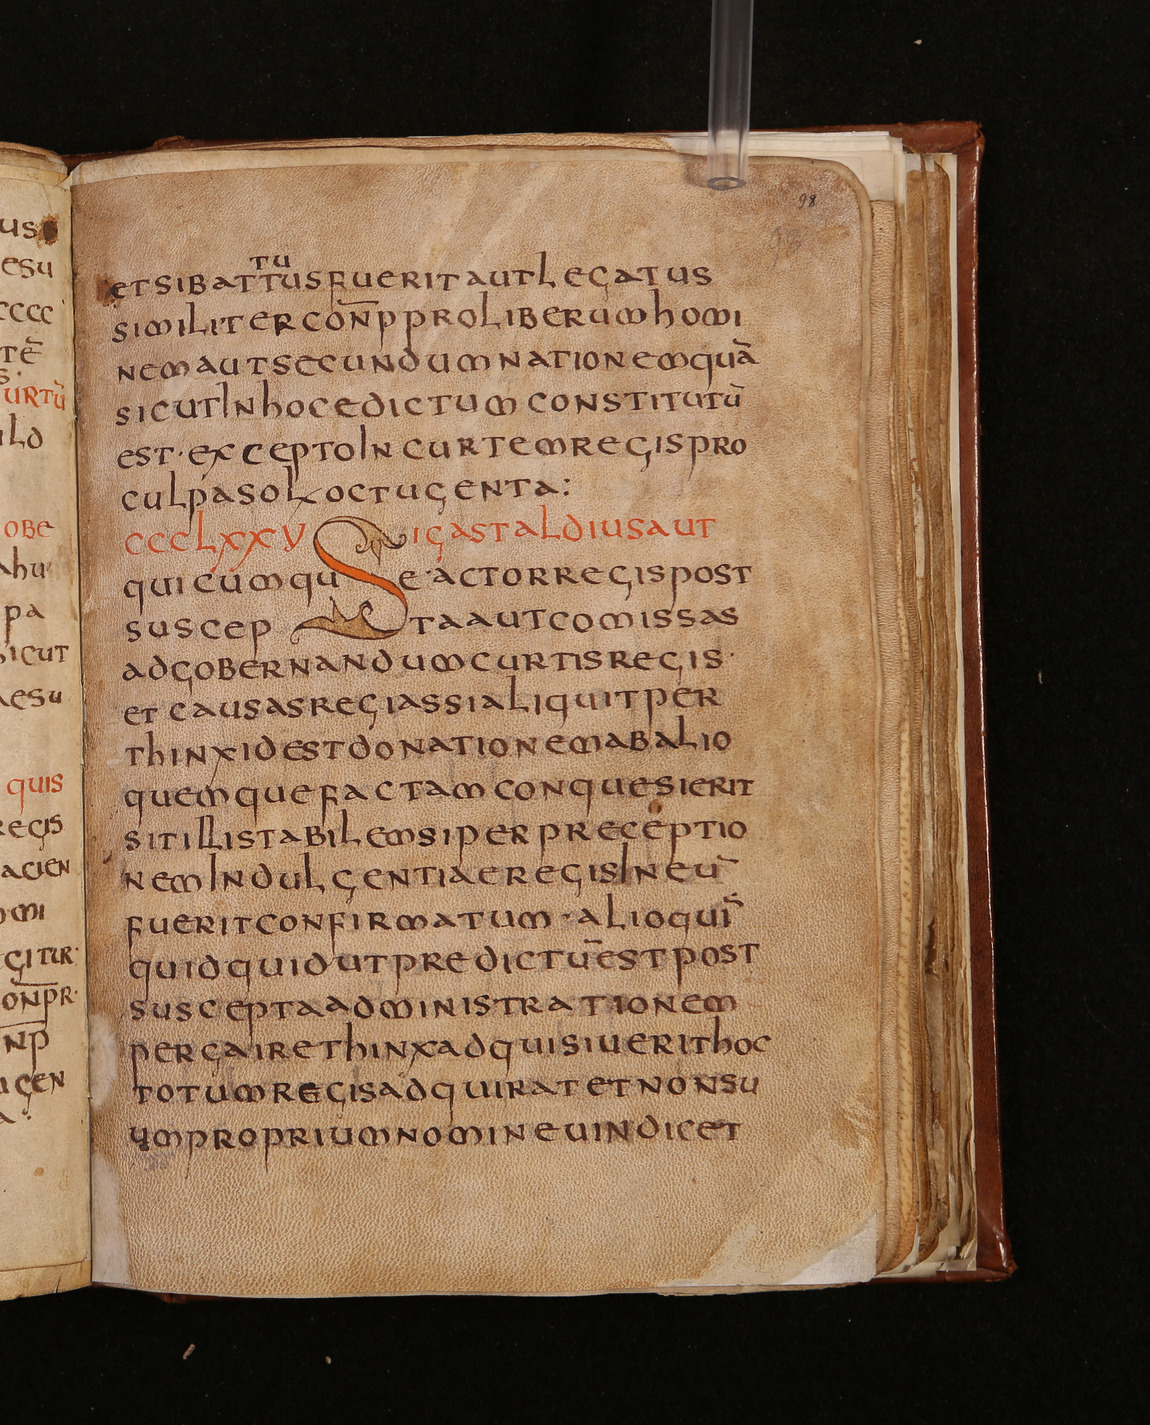 us
esu
cccc
tē
s·
urtū
ild
obe
ahu
pa
sicut
aesu
quis
regis
acien
omi
gitur·
onpr·
np
ugen
a·
98
tu
etsibattusfueritautlegatus
similitercon̄pproliberumhomi
nemautsecundumnationemquā
sicutinhocedictumconstitutū
est·exceptoincurtemregispro
culpasolxoctugenta:
ccclxxv Sigastaldiusaut
quicumque·actorregispost
suscep taautcomissas
adgobernandumcurtisregis·
etcausasregiassialiquitper
thinxidestdonationemabalio
quemquefactamconquesierit
sitillistabilemsiperpreceptio
nemindulgentiaeregisineū
fueritconfirmatum·alioqui
quidquidutpredictūestpost
susceptaadministrationem
pergairethinxadquisiuerithoc
totumregisadquiratetnonsu
umpropriumnomineuindicet